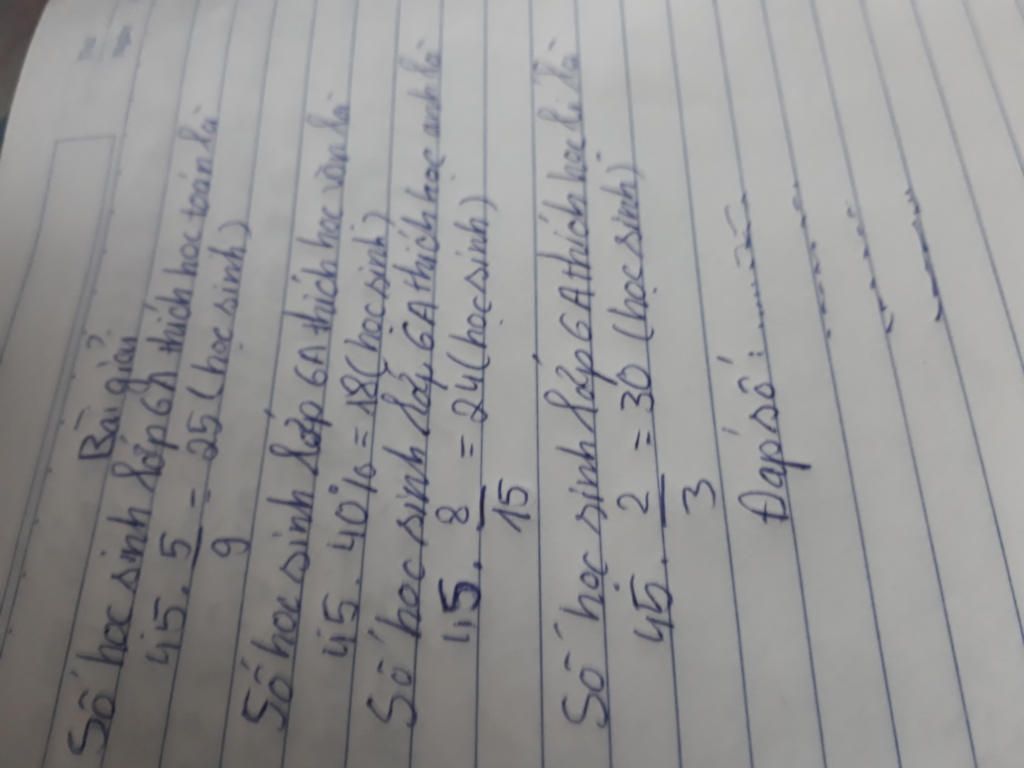 Bài giải
Số học sinh lớp 6A thích học toán là
45 . 5/9 = 25 (học sinh)
Số học sinh lớp 6A thích học văn là
45 . 40% = 18 (học sinh)
Số học sinh lớp 6A thích học anh là
45 . 8/15 = 24 (học sinh)
Số học sinh lớp 6A thích học lí là
45 . 2/3 = 30 (học sinh)
Đáp số: ..........